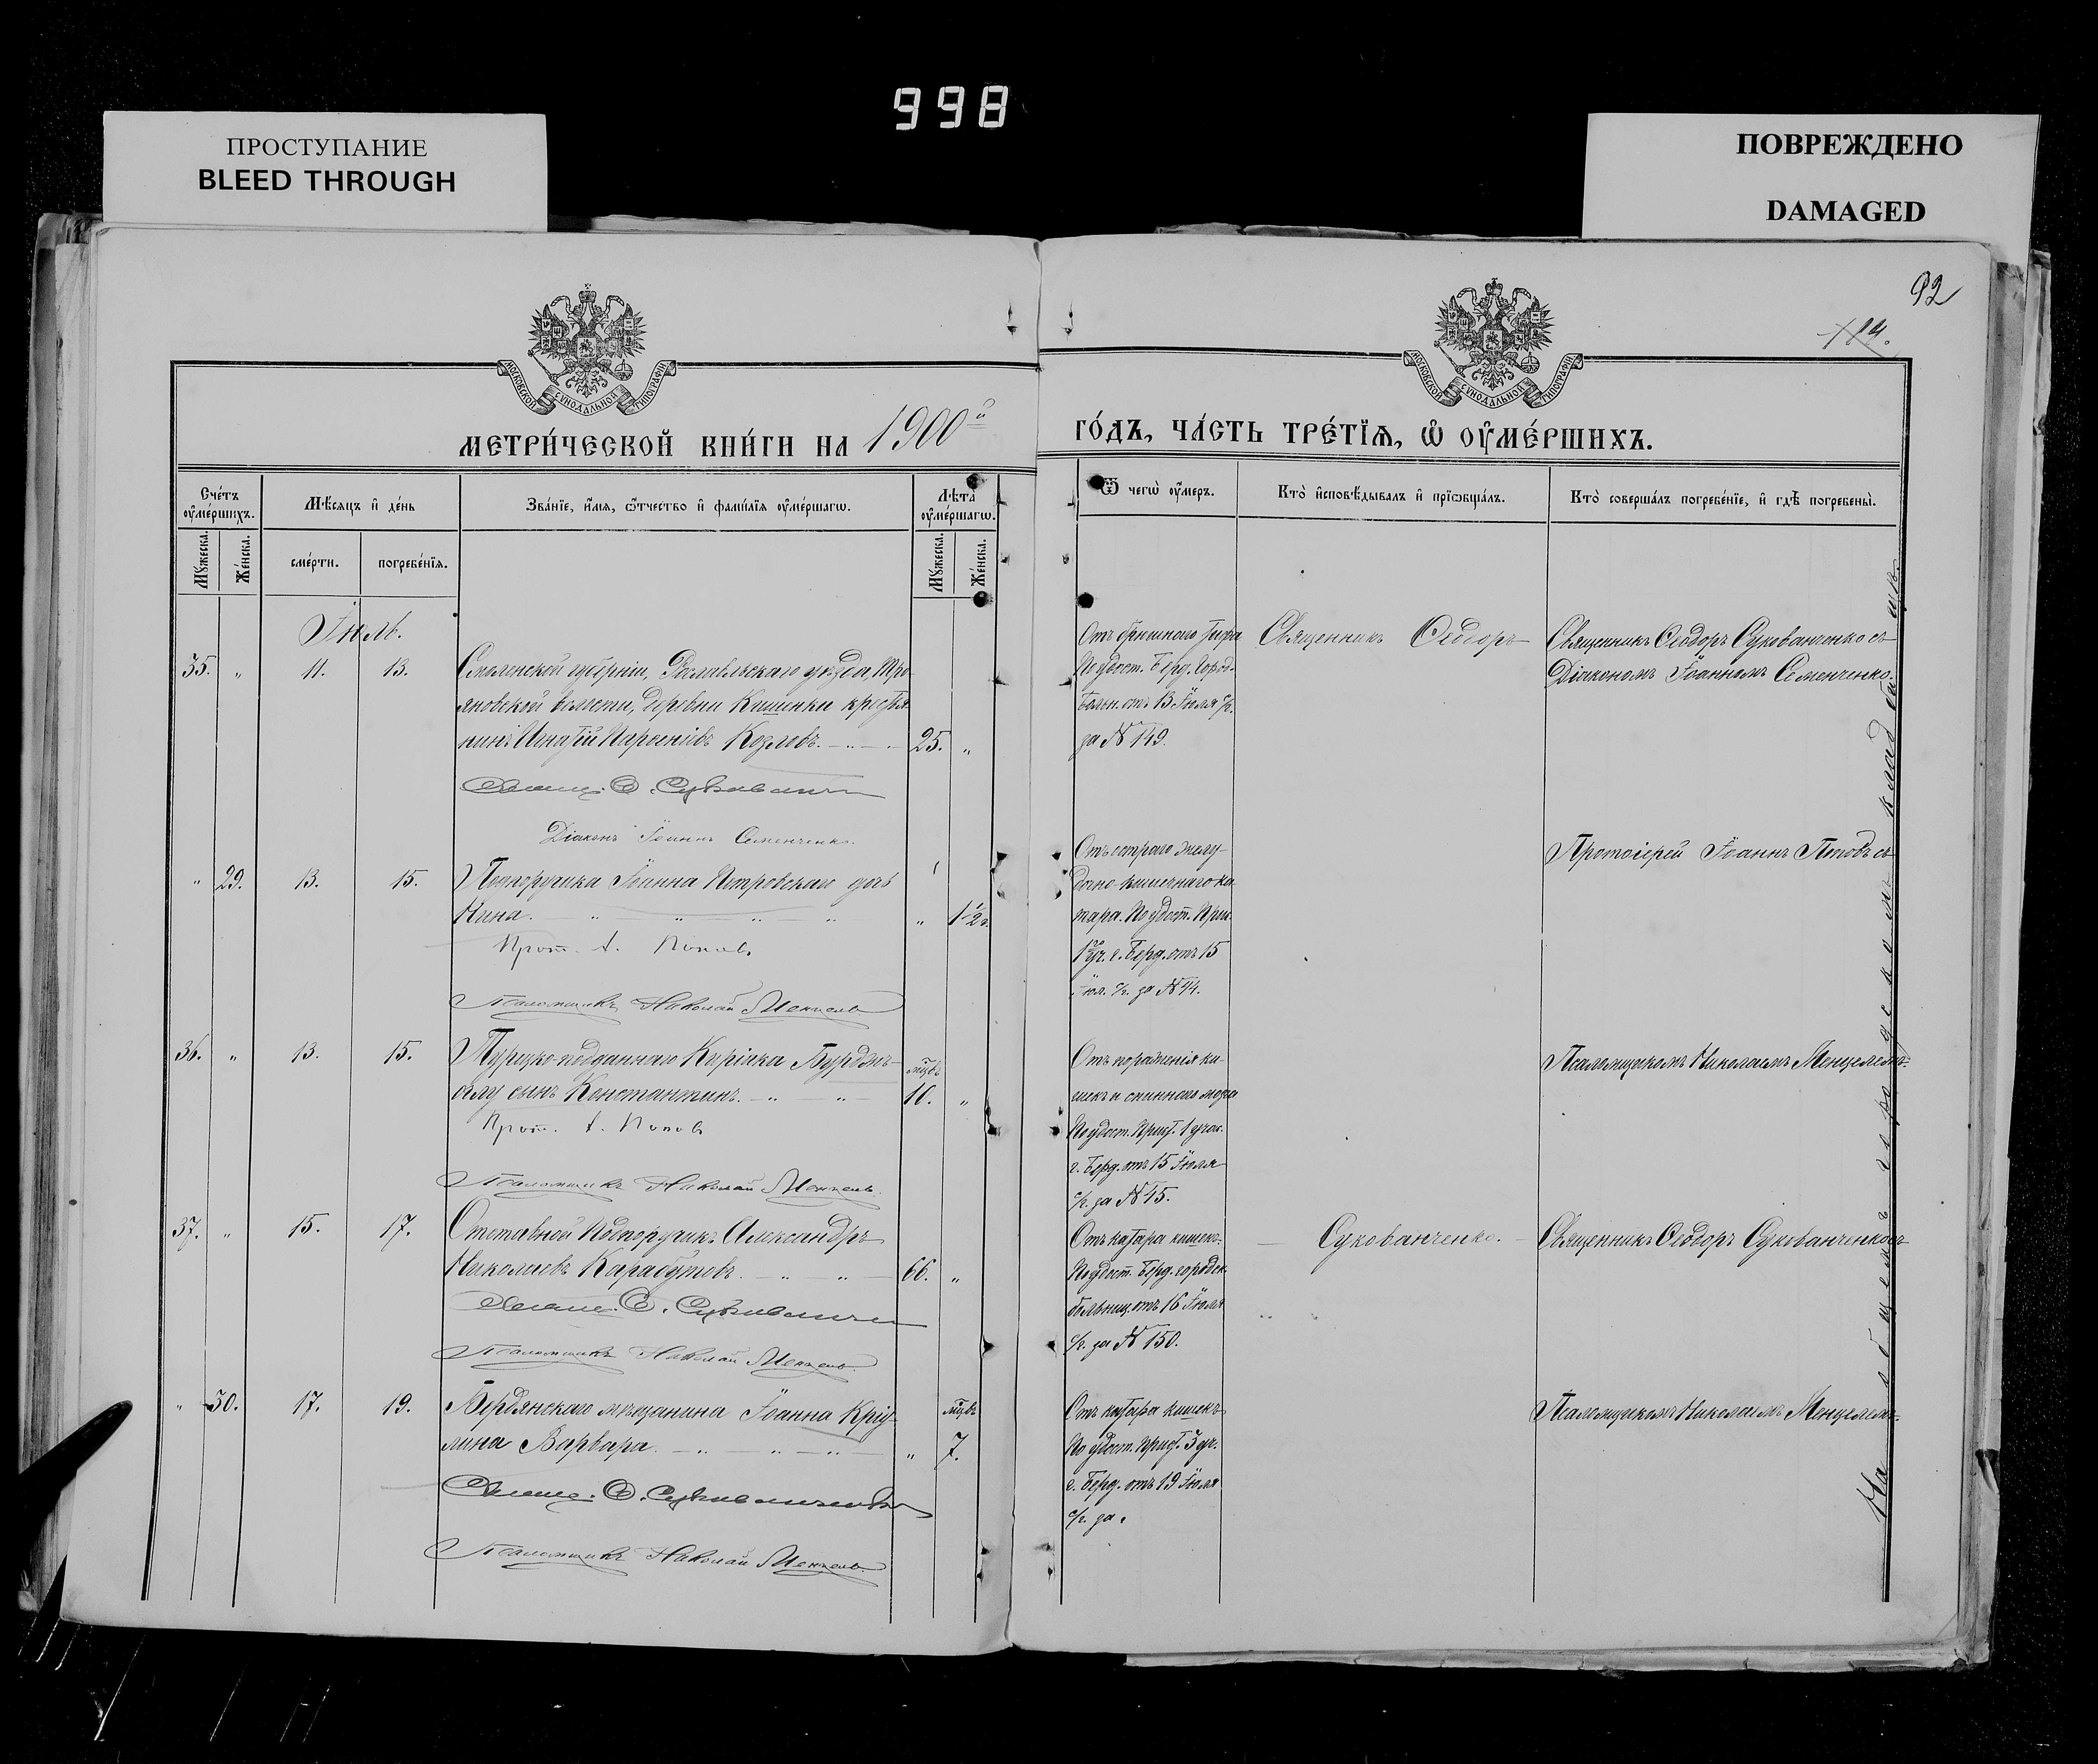 998
ПРОСТУПАНИЕ
BLEED THROUGH
ПОВРЕЖДЕНО
DAMAGED
92
184.
МОСКОВСКОЙ СУНОДАЛЬНОЙ ТИПОГРАФІИ
МОСКОВСКОЙ СУНОДАЛЬНОЙ ТИПОГРАФІИ
МЕТРИ́ЧЕСКОЙ КНИ́ГИ НА 1900й
ГО́ДЪ, ЧА́СТЬ ТРЕ́ТЇѦ, Ѡ҆ ОУ҆МЕ́РШИХЪ.
Сче́тъ оу҆ме́ршихъ.
Мѣ́сяцъ и҆ де́нь
Зва́нїе, и҆́мѧ, ѻ҆́тчество и҆ фами́лїѧ оу҆ме́ршагѡ.
Лѣ́та оу҆ме́ршагѡ.
Ѿ чегѡ̀ оу҆́меръ.
Кто̀ и҆сповѣ́дывалъ и҆ прїѡбща́лъ.
Кто̀ соверша́лъ погребе́нїе, и҆ гдѣ̀ погребены̀.
Мꙋ́жеска.
Же́нска.
сме́рти.
погребе́нїѧ.
Мꙋ́жеска.
Же́нска.
Іюль.
35. „ 11. 13. Смоленской губерніи, Рославльскаго уѣзда, Тро-
яновской волости, деревни Кишинки крестья-
нинъ Игнатій Парѳеніевъ Козловъ. 25. „
Свящ. Ѳ. Сукованч
Діаконъ Іоаннъ Семенченко.
Отъ брюшного тифа
По удост. Берд. город.
больн. отъ 13 Іюля с/г.
за № 149.
Священникъ Ѳеодоръ
Священникъ Ѳеодоръ Сукованченко съ
Діакономъ Іоанномъ Семенченко.
„ 29. 13. 15. Подпоручика Іоанна Петровскаго дочь
Нина. „ 1 1/2 г.
Прот. І. Поповъ
Псаломщикъ Николай Менцель
Отъ остраго желу-
дочно-кишечнаго ка-
тара. По удост. Прис.
1го уч. г. Берд. отъ 15
Іюл. с/г. за № 44.
Протоіерей Іоаннъ Поповъ съ
36. „ 13. 15. Турецко-подданнаго Киріака Бурдзъ-
оглу сынъ Константинъ. мцвъ 10. „
Прот. І. Поповъ
Псаломщикъ Николай Менцель
Отъ пораженія ки-
шекъ и спинного мозга
По удост. Прист. 1 учас.
г. Берд. отъ 15 Іюля
с/г. за № 45.
Псаломщикомъ Николаемъ Менцелемъ.
37. „ 15. 17. Отставной Подпоручикъ Александръ
Николаевъ Карабутовъ. 66. „
Свящ. Ѳ. Сукованче
Псаломщикъ Николай Менцель
Отъ катара кишекъ.
По удост. Берд. городск.
больниц. отъ 16 Іюля
с/г. за № 150.
Сукованченко.
Священникъ Ѳеодоръ Сукованченко съ
„ 30. 17. 19. Бердянскаго мѣщанина Іоанна Кріу-
лина Варвара. „ мцвъ 7.
Свящ. Ѳ. Сукованченко
Псаломщикъ Николай Менцель
Отъ катара кишекъ
По удост. Прист. 3 уч.
г. Берд. отъ 19 Іюля
с/г. за
Псаломщикомъ Николаемъ Менцелемъ.
На общемъ городскомъ кладбищѣ.